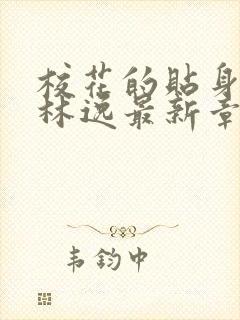 校花的贴身
林逸最新章
韦钧中